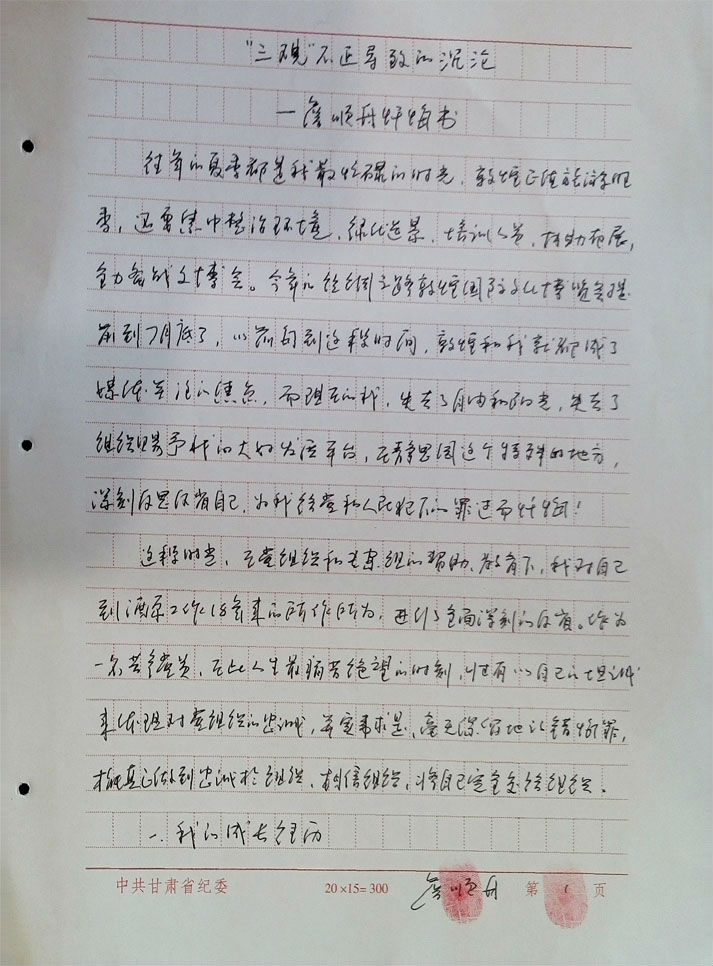 “三观”不正导致的沉沦
—詹顺舟忏悔书
往年的夏季都是我最忙碌的时光，敦煌正值旅游旺
季，还要集中整治环境，绿化造景，培训人员，
全力备战文博会。今年的丝绸之路敦煌国际文化博览会提
前到7月底了，以前每到这段时间，敦煌和我就都成了
媒体关注的焦点，而现在的我，失去了自由和阳光，失去了
组织赐予我的大好发展平台，在静思园这个特殊的地方，
深刻反思反省自己，为我给党和人民犯下的罪过而忏悔！
这段时光，在党组织和专案组的帮助、教育下，我对自己
到酒泉工作18年来的所作所为，进行了全面深刻的反省。作为
一名共产党员，在此人生最痛苦绝望的时刻，唯有以自己的坦诚
来体现对党组织的忠诚，实事求是、毫无保留地认错悔罪，
才能真正做到忠诚于组织、相信组织，将自己完全交给组织。
一、我的成长经历
中共甘肃省纪委 20×15=300 詹顺舟 第 1 页